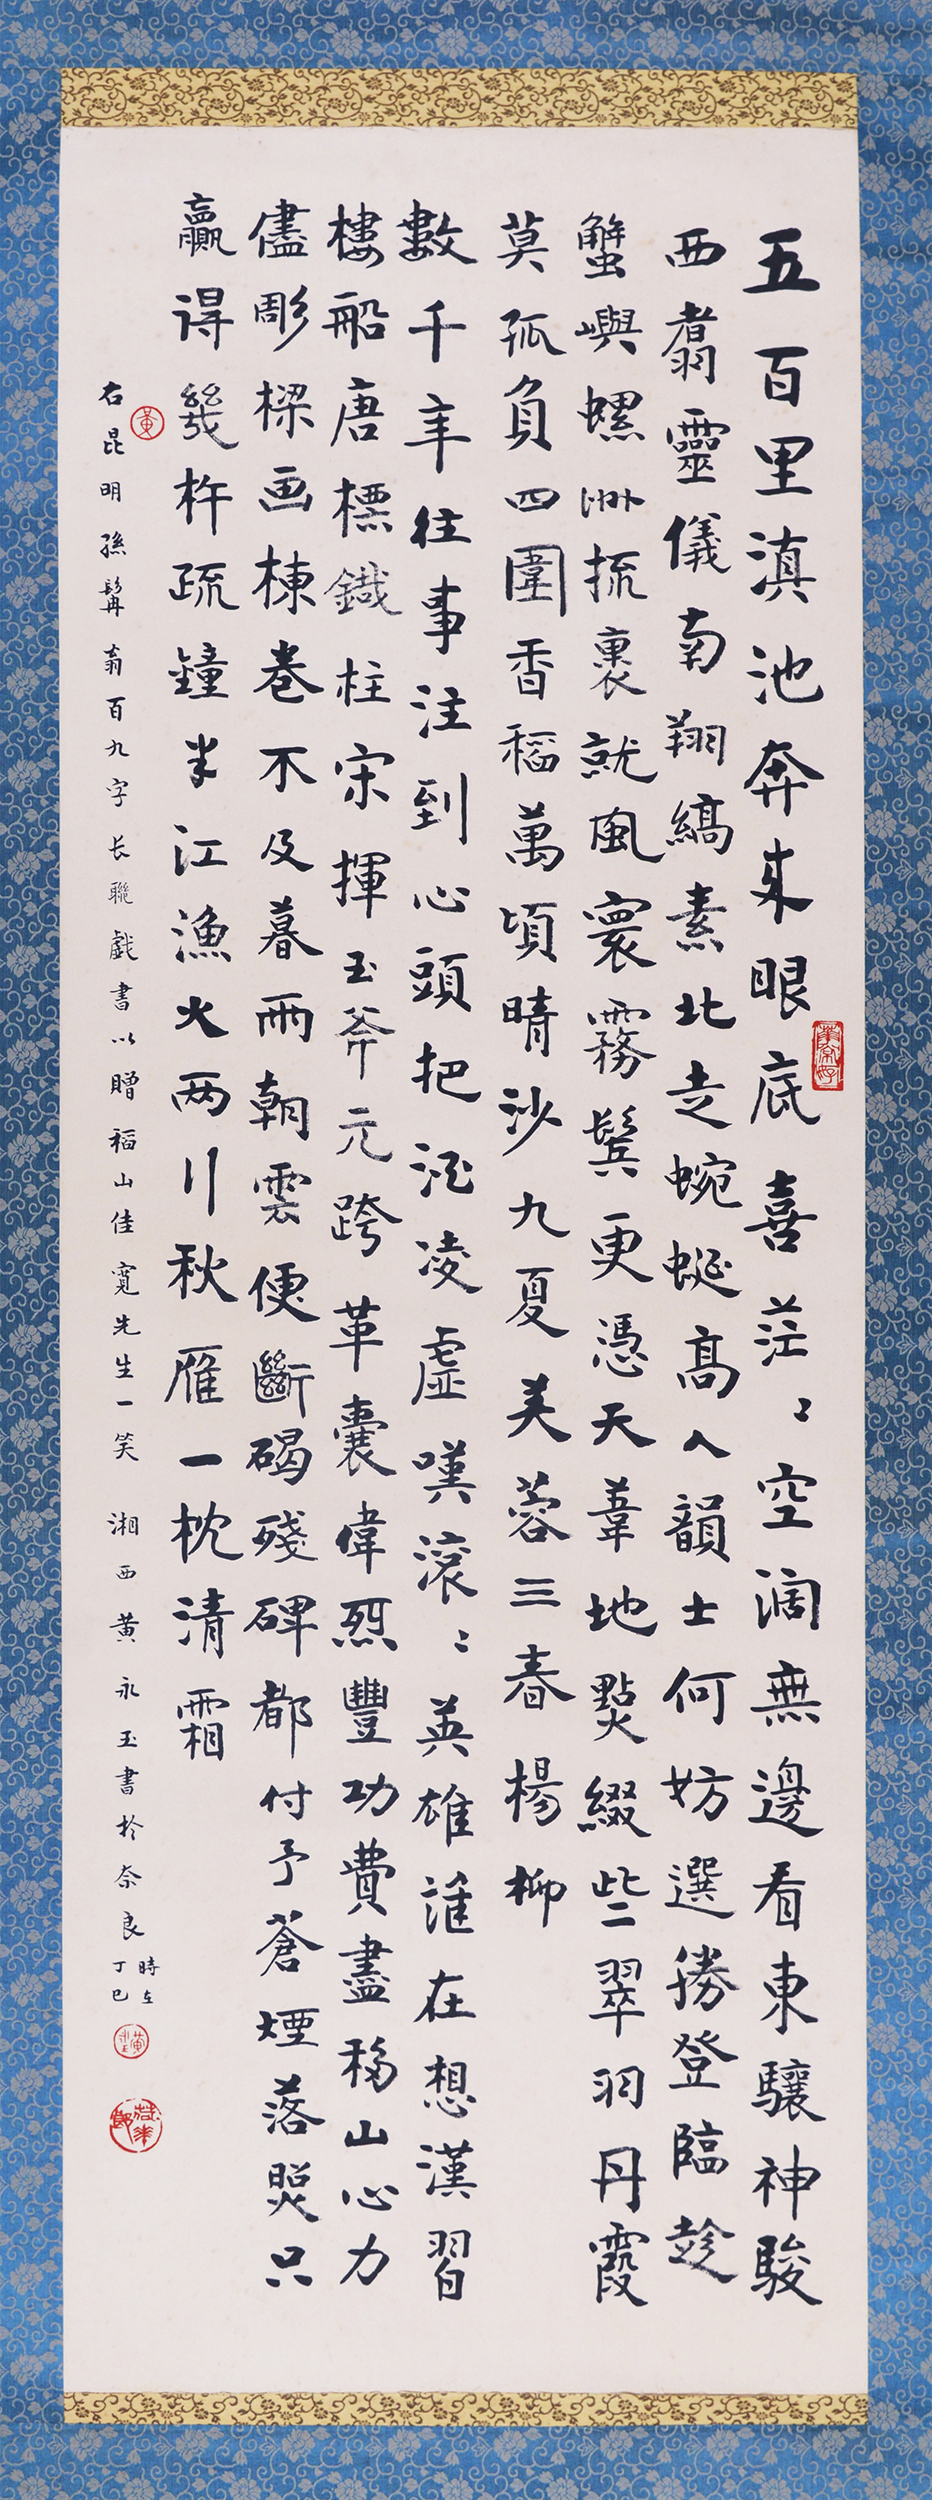 五百里滇池奔來眼底喜茫〻空阔無邊看東驤神駿
西翥靈儀南翔縞素北走蜿蜒高人韻士何妨選勝登臨趁
蟹嶼螺洲梳裹就風寰霧鬢更憑天葦地點綴些翠羽丹霞
莫孤負四圍香稻萬頃晴沙九夏芙蓉三春楊柳
數千年往事注到心頭把酒凌虛嘆滚〻英雄誰在想漢習
樓船唐標鐵柱宋揮玉斧元跨革囊偉烈豐功費盡移山心力
儘彫樑画棟卷不及暮雨朝雲便斷碣殘碑都付予蒼煙落照只
贏得幾杵疏鐘半江漁火两行秋雁一枕清霜
右昆明孫髯翁百九字长聯戲書以贈稻山佳寬先生一笑 湘西黄永玉書於奈良
時在
丁巳
黄
黄永玉